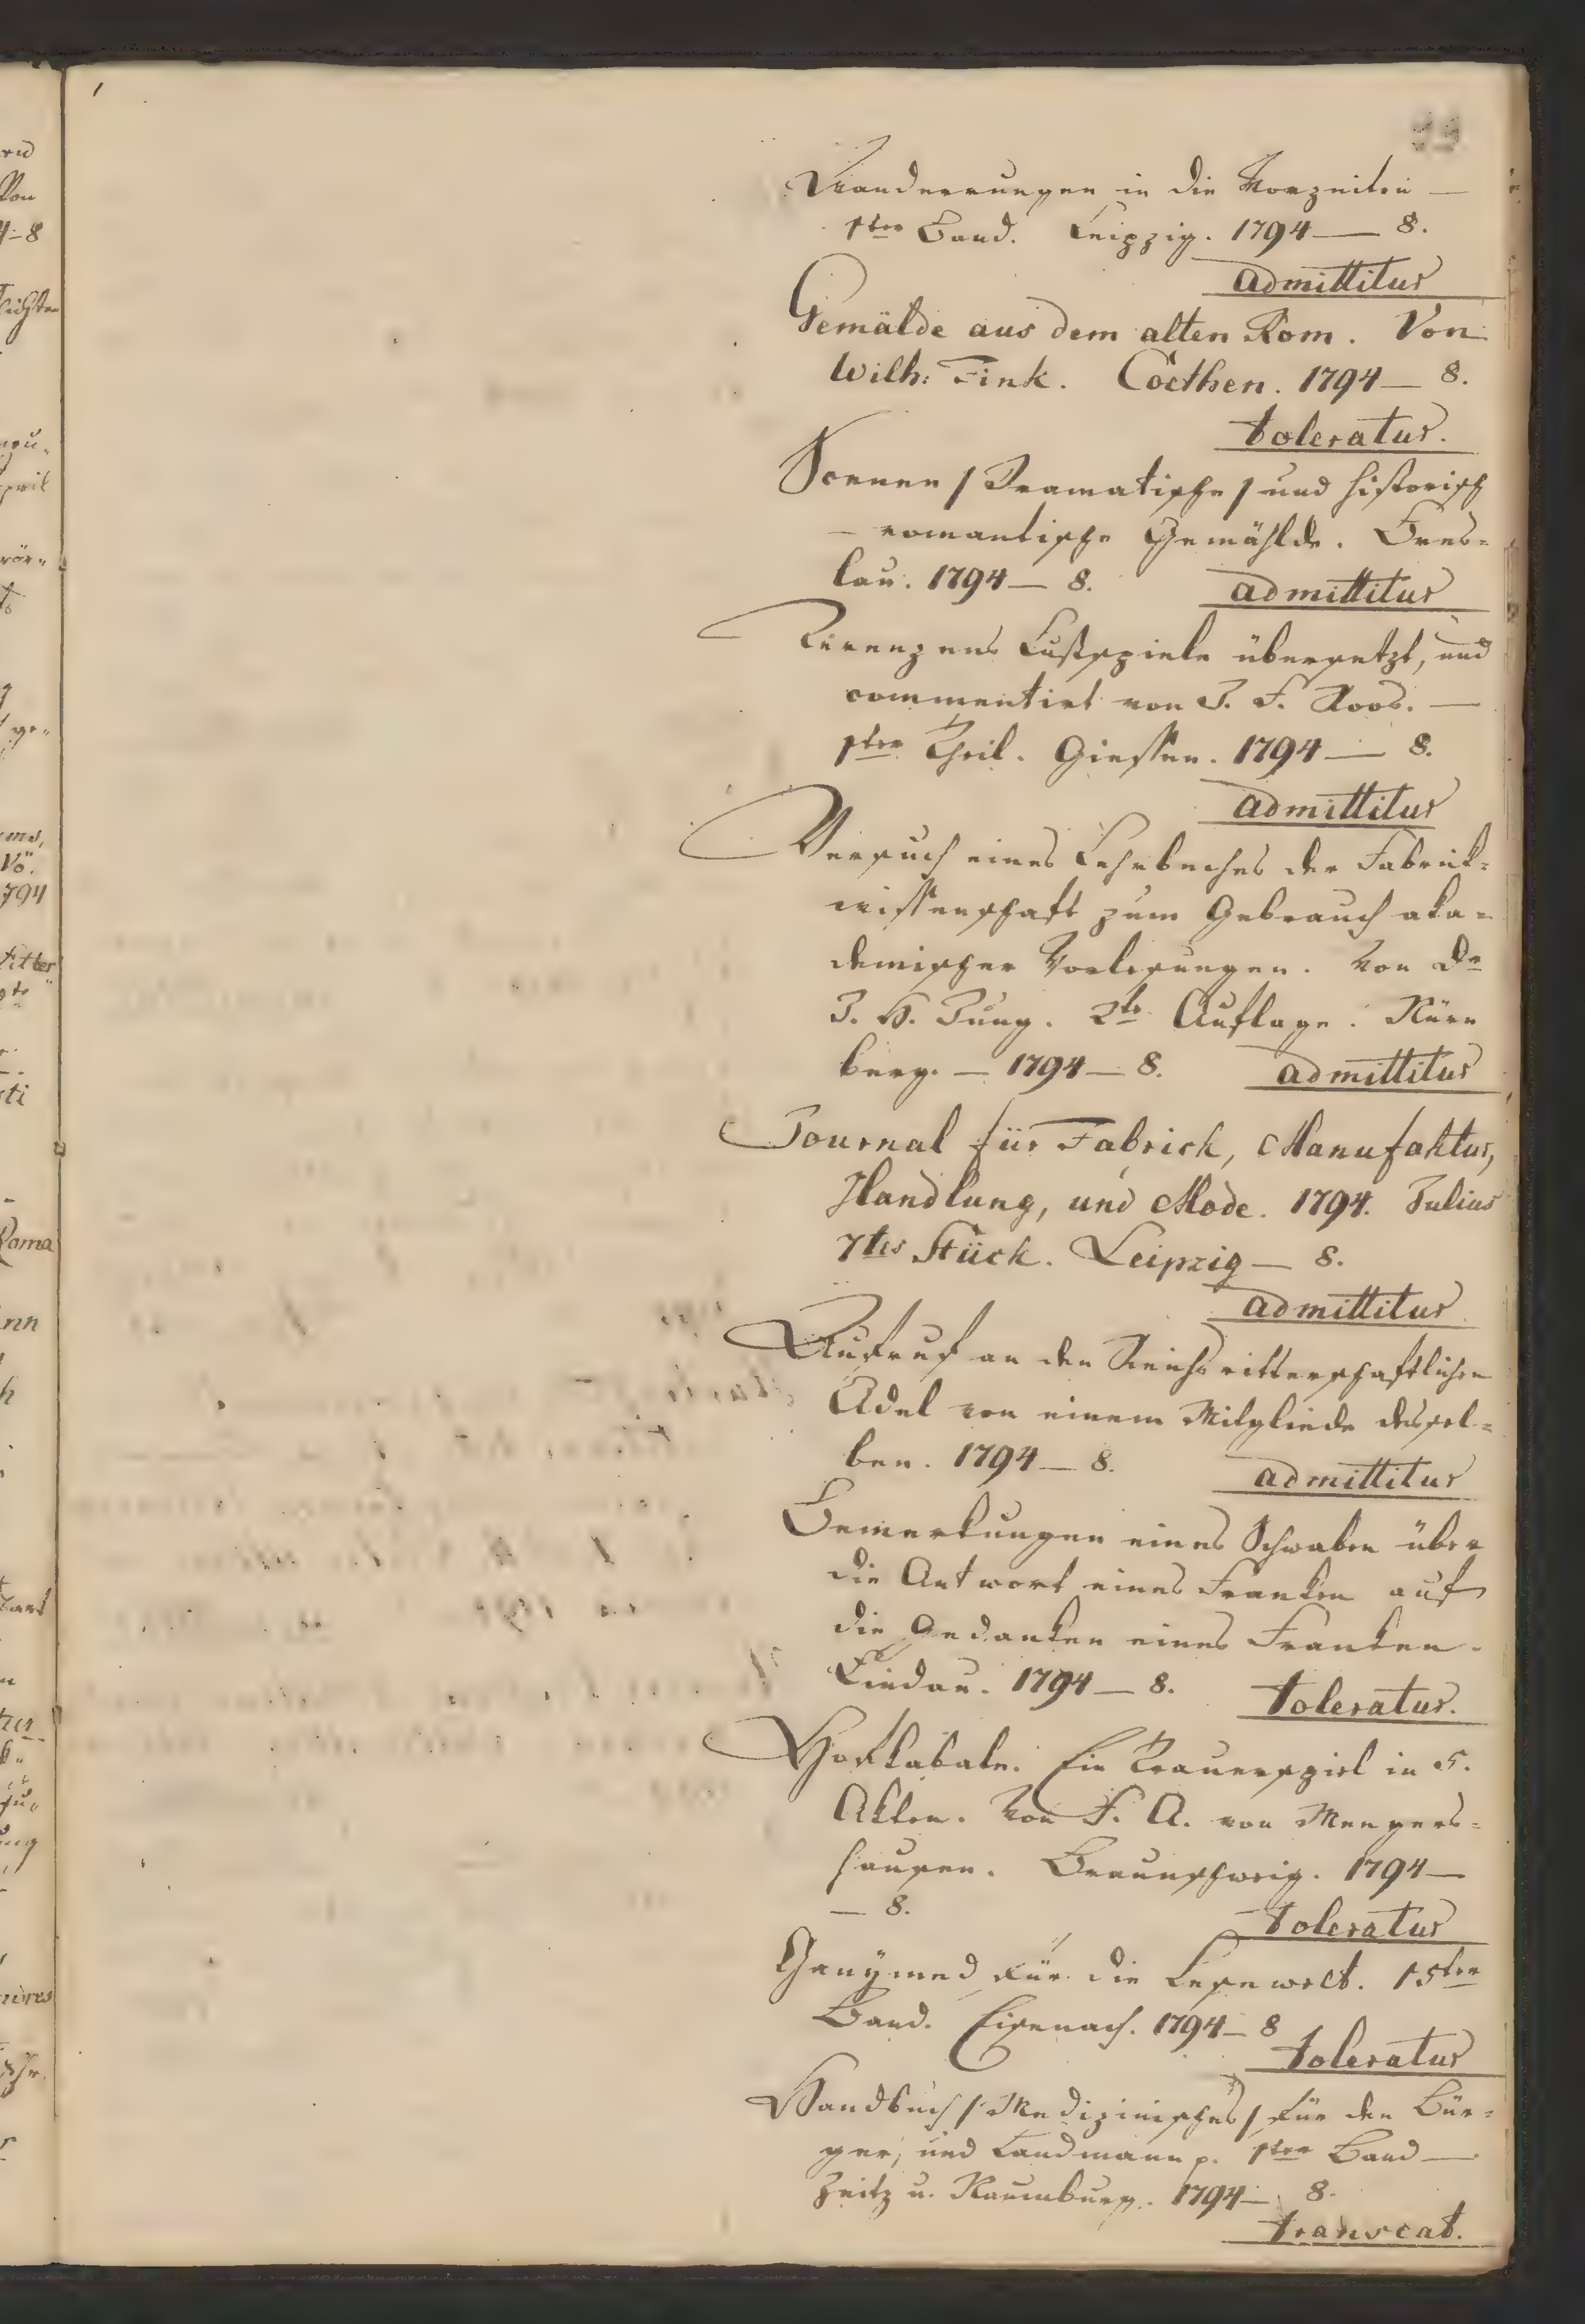 99
Wanderungen in die Vorzeiten —
1ter Band. Leipzig. 1794 — 8.
admittitur
Gemälde aus dem alten Rom. Von
Wilh: Fink. Cöethen. 1794 — 8.
toleratur.
Scenen / Dramatische / und historisch
— romantische Gemählde. Bres=
lau. 1794 — 8. admittitur
Terenzens Lustspiele übersetzt, und
commentirt von J. F. Roos. —
1ter Theil. Giessen. 1794 — 8.
admittitur
Versuch eines Lehrbuches der Fabrick=
wissenschaft zum Gebrauch aka=
demischer Vorlesungen. Von Dr
J. H. Jung. 2te Auflage. Nürn
berg. — 1794 — 8. admittitur
Journal für Fabrick, Manufaktur,
Handlung, und Mode. 1794. Julius
7tes Stück. Leipzig — 8.
admittitur
Aufruf an den Reichsritterschaftlichen
Adel von einem Mitgliede dessel=
ben. 1794 — 8. admittitur
Bemerkungen eines Schwaben über
die Antwort eines Franken auf
die Gedanken eines Franken.
Lindau. 1794 — 8. toleratur.
Hofkabale. Ein Trauerspiel in 5.
Akten. Von F. A. von Mengers=
hausen. Braunschweig. 1794 —
— 8. toleratur
Ganymed für die Lesewelt. 15ter
Band. Eisenach. 1794 — 8
toleratur
Handbuch / Medizinisches / für den Bür=
ger, und Landmann p. 1ter Band —
Zeitz u. Naumburg. 1794 — 8.
transeat.